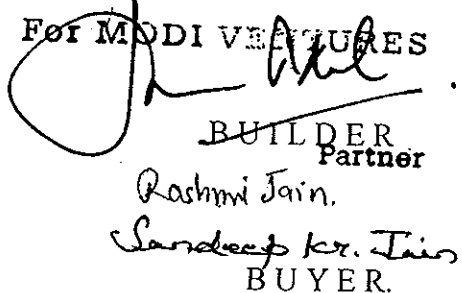 For MODI VENTURES
BUILDER
Partner
Rashmi Jain.
Sandeep Kr. Jain
BUYER.